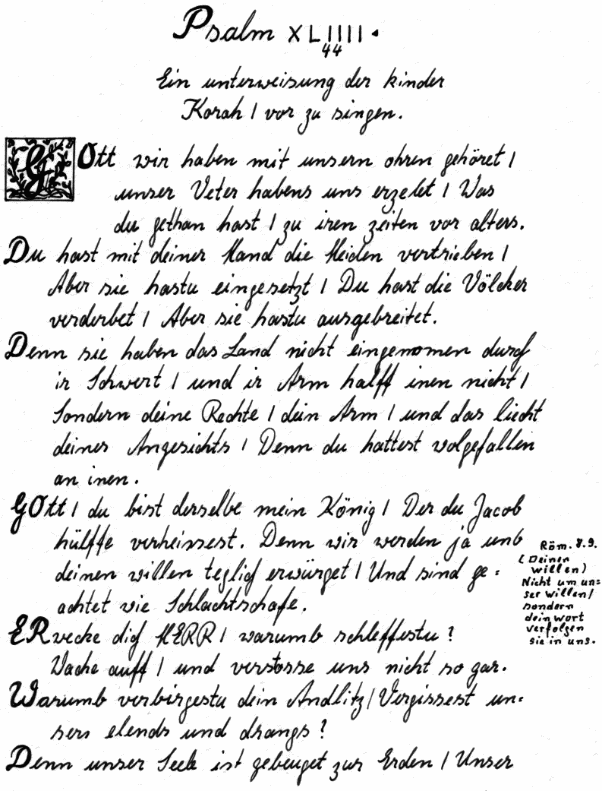 Psalm XLIIII.
44
Ein unterweisung der kinder
Korah / vor zu singen.
GOtt wir haben mit unsern ohren gehöret /
unser Veter habens uns erzelet / Was
du gethan hast / zu iren zeiten vor alters.
Du hast mit deiner Hand die Heiden vertrieben /
Aber sie hastu eingesetzt / Du hast die Völcker
verderbet / Aber sie hastu ausgebreitet.
Denn sie haben das Land nicht eingenomen durch
ir Schwert / und ir Arm halff inen nicht /
Sondern deine Rechte / dein Arm / und das liecht
deines Angesichts / Denn du hattest wolgefallen
an inen.
GOtt / du bist derselbe mein König / Der du Jacob
hülffe verheissest. Denn wir werden ja umb
deinen willen teglich erwürget / Und sind ge-
achtet wie Schlachtschafe.
ERwecke dich HERR / warumb schleffestu?
Wache auff / und verstosse uns nicht so gar.
Warumb verbirgestu dein Andlitz / Vergissest un-
sers elends und drangs?
Denn unser Seele ist gebeuget zur Erden / Unser
Röm. 8.9.
(Deinen
willen)
Nicht um un-
ser willen /
sondern
dein wort
verfolgen
sie in uns.